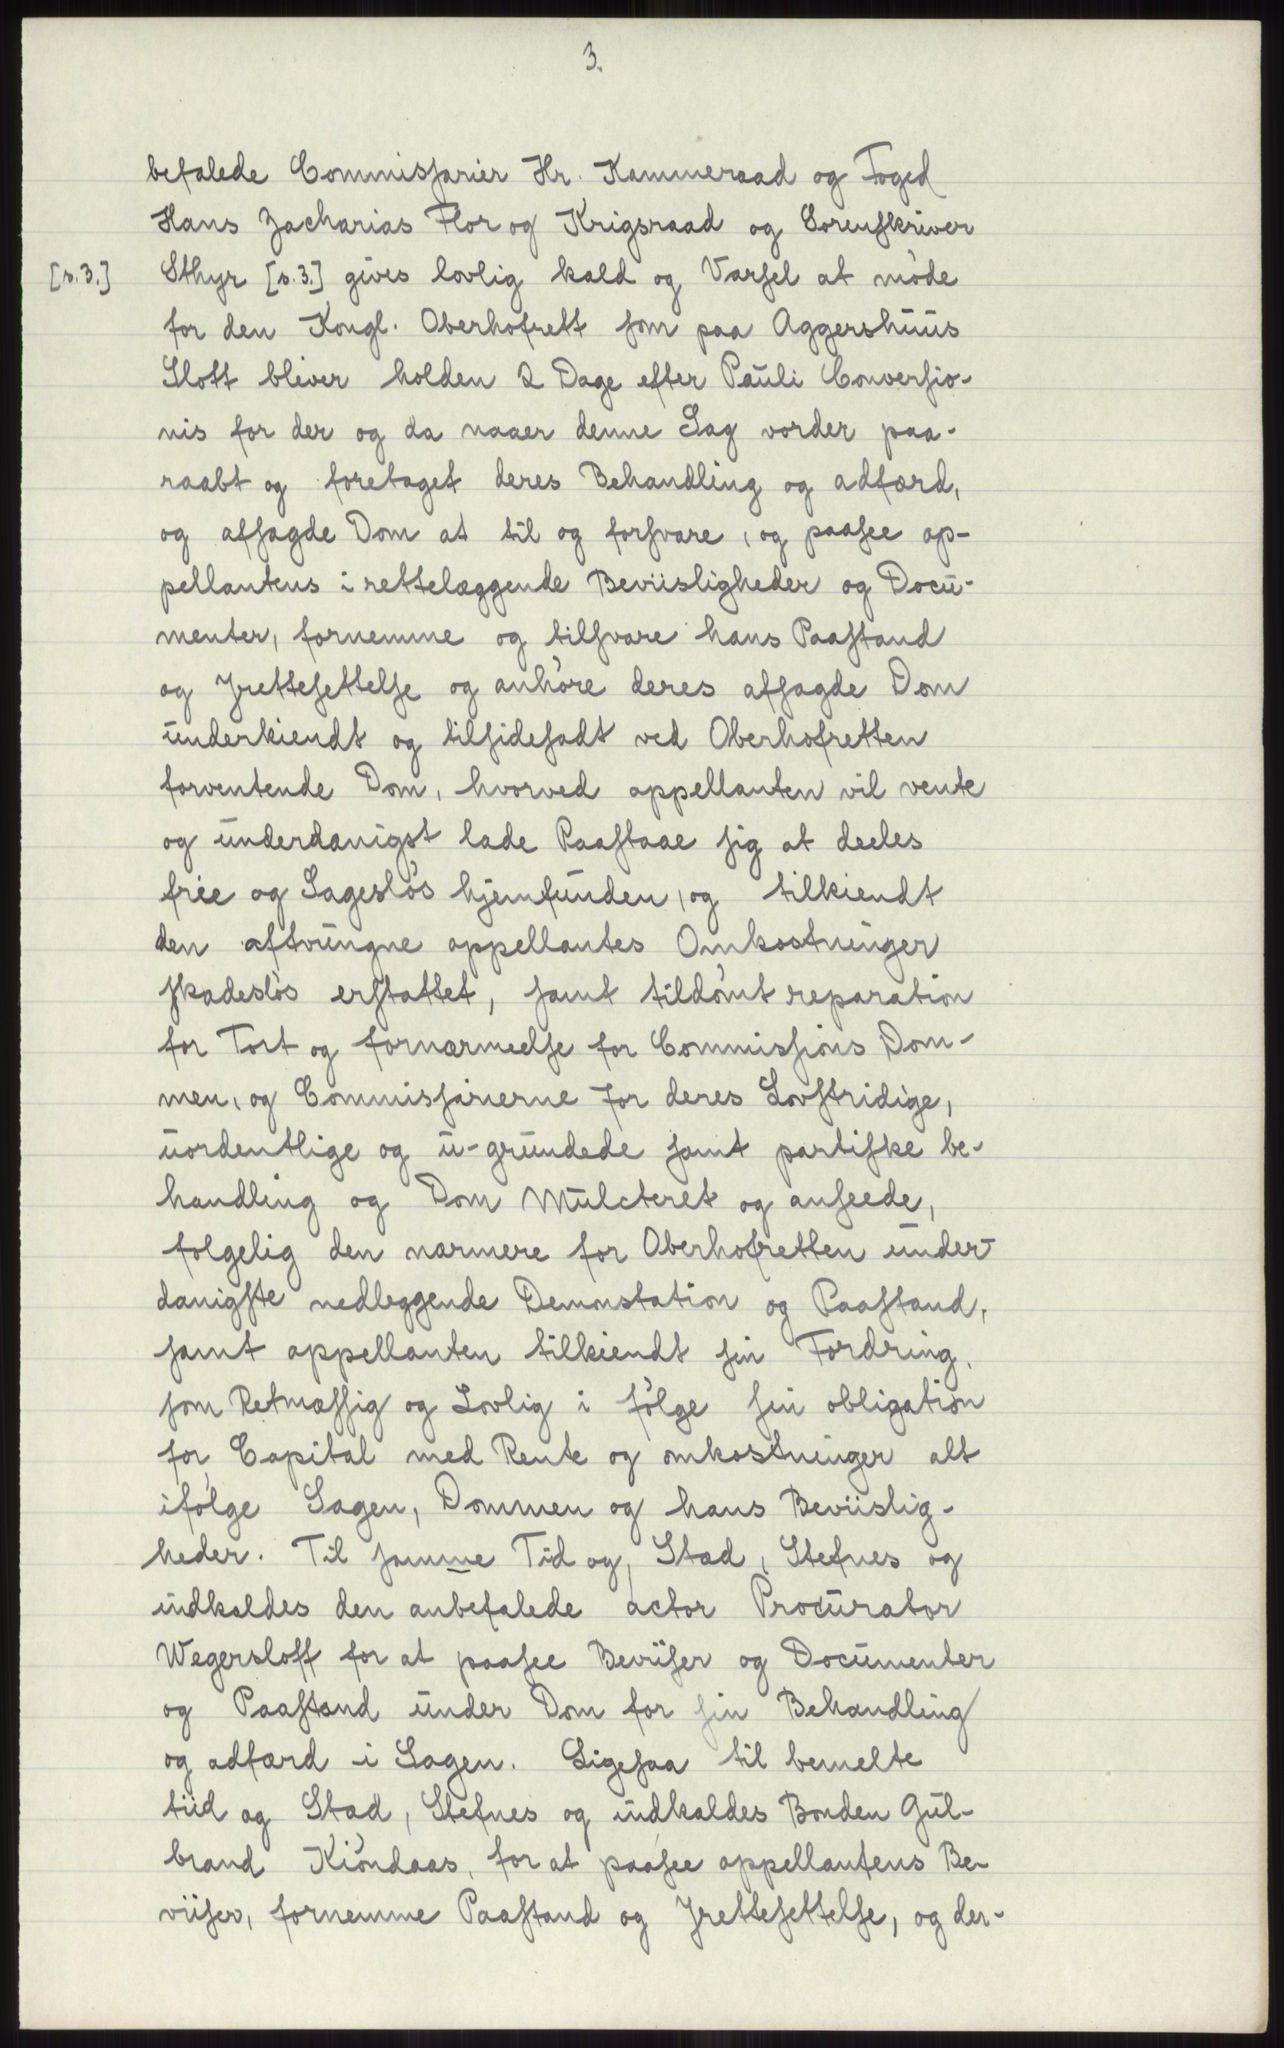 3.
befalede Commissarier Hr. Kammeraad og Foged
Hans Zacharias Flor og Krigsraad og Sorenskriver
[s.3.] Sthyr [s.3.] gives lovlig kald og Varsel at møde
for den Kongl. Oberhofrett som paa Aggershuus
Slott bliver holden 2 Dage efter Pauli Conversio-
nis for der og da naaer denne Sag vorder paa-
raabt og foretaget deres Behandling og adfærd,
og afsagde Dom at til og forsvare, og paasee ap-
pellantens i rettelæggende Beviisligheder og Docu-
menter, fornemme og tilsvare hans Paastand
og Irettesettelse og anhøre deres afsagde Dom
underkiendt og tilsidesadt ved Oberhofretten
forventende Dom, hvorved appellanten vil vente
og underdanigst lade Paastaae sig at deeles
friе og Sagesløs hjemfunden, og tilkiendt
den aftvungne appellantes Omkostninger
skadesløs erstattet, samt tildømt reparation
for Tort og fornærmeelse for Commissions Dom-
men, og Commissarierne for deres Lovstridige,
uordentlige og u-grundede samt partiske be-
handling og Dom Mulcteret og anseede,
følgelig den nærmere for Oberhofretten under-
danigste nedleggende Demonstation og Paastand,
samt appellanten tilkiendt sin Fordring,
som Retmæssig og Lovlig i følge sin obligation
for Capital med Rente og omkostninger alt
ifølge Sagen, Dommen og hans Beviislig-
heder. Til samme Tid og, Stæd, Stefnes og
indkaldes den anbefalede actor Procurator
Wegersloff for at paasee Beviiser og Documenter
og Paastand under Dom for sin Behandling
og adfærd i Sagen. Ligesaa til bemelte
tiid og Stæd, Stefnes og indkaldes Bonden Gul-
brand Kiøndaas, for at paasee appellantens Be-
viiser, fornemme Paastand og Irettesettelse, og der-